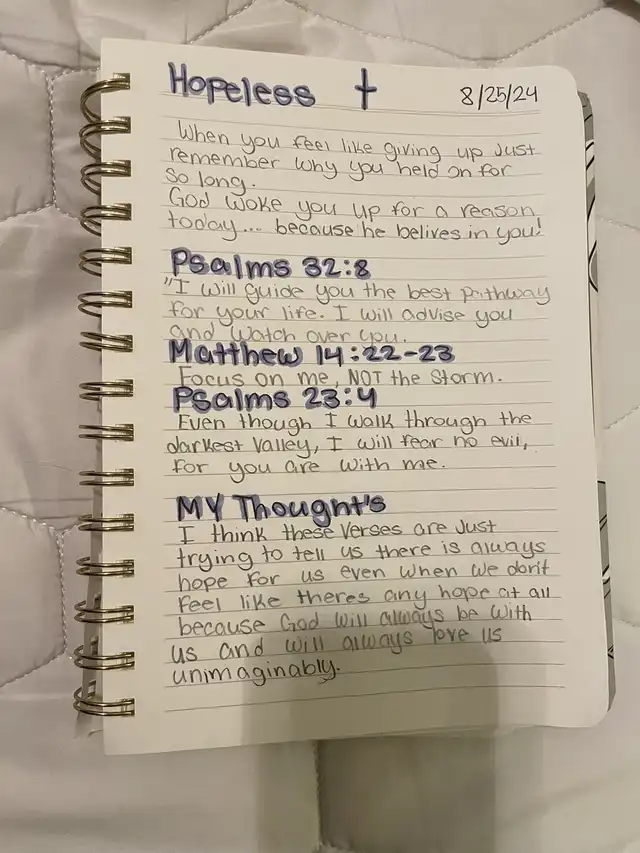 Hopeless ✝ 8/25/24
When you feel like giving up Just
remember why you held on for
so long.
God woke you up for a reason
today... because he belives in you!
Psalms 32:8
"I will guide you the best pathway
for your life. I will advise you
and watch over you.
Matthew 14:22-23
Focus on me, NOT the storm.
Psalms 23:4
Even though I walk through the
darkest valley, I will fear no evil,
for you are with me.
MY Thought's
I think these verses are Just
trying to tell us there is always
hope for us even when we don't
feel like theres any hope at all
because God will always be with
us and will always love us
unimaginably.